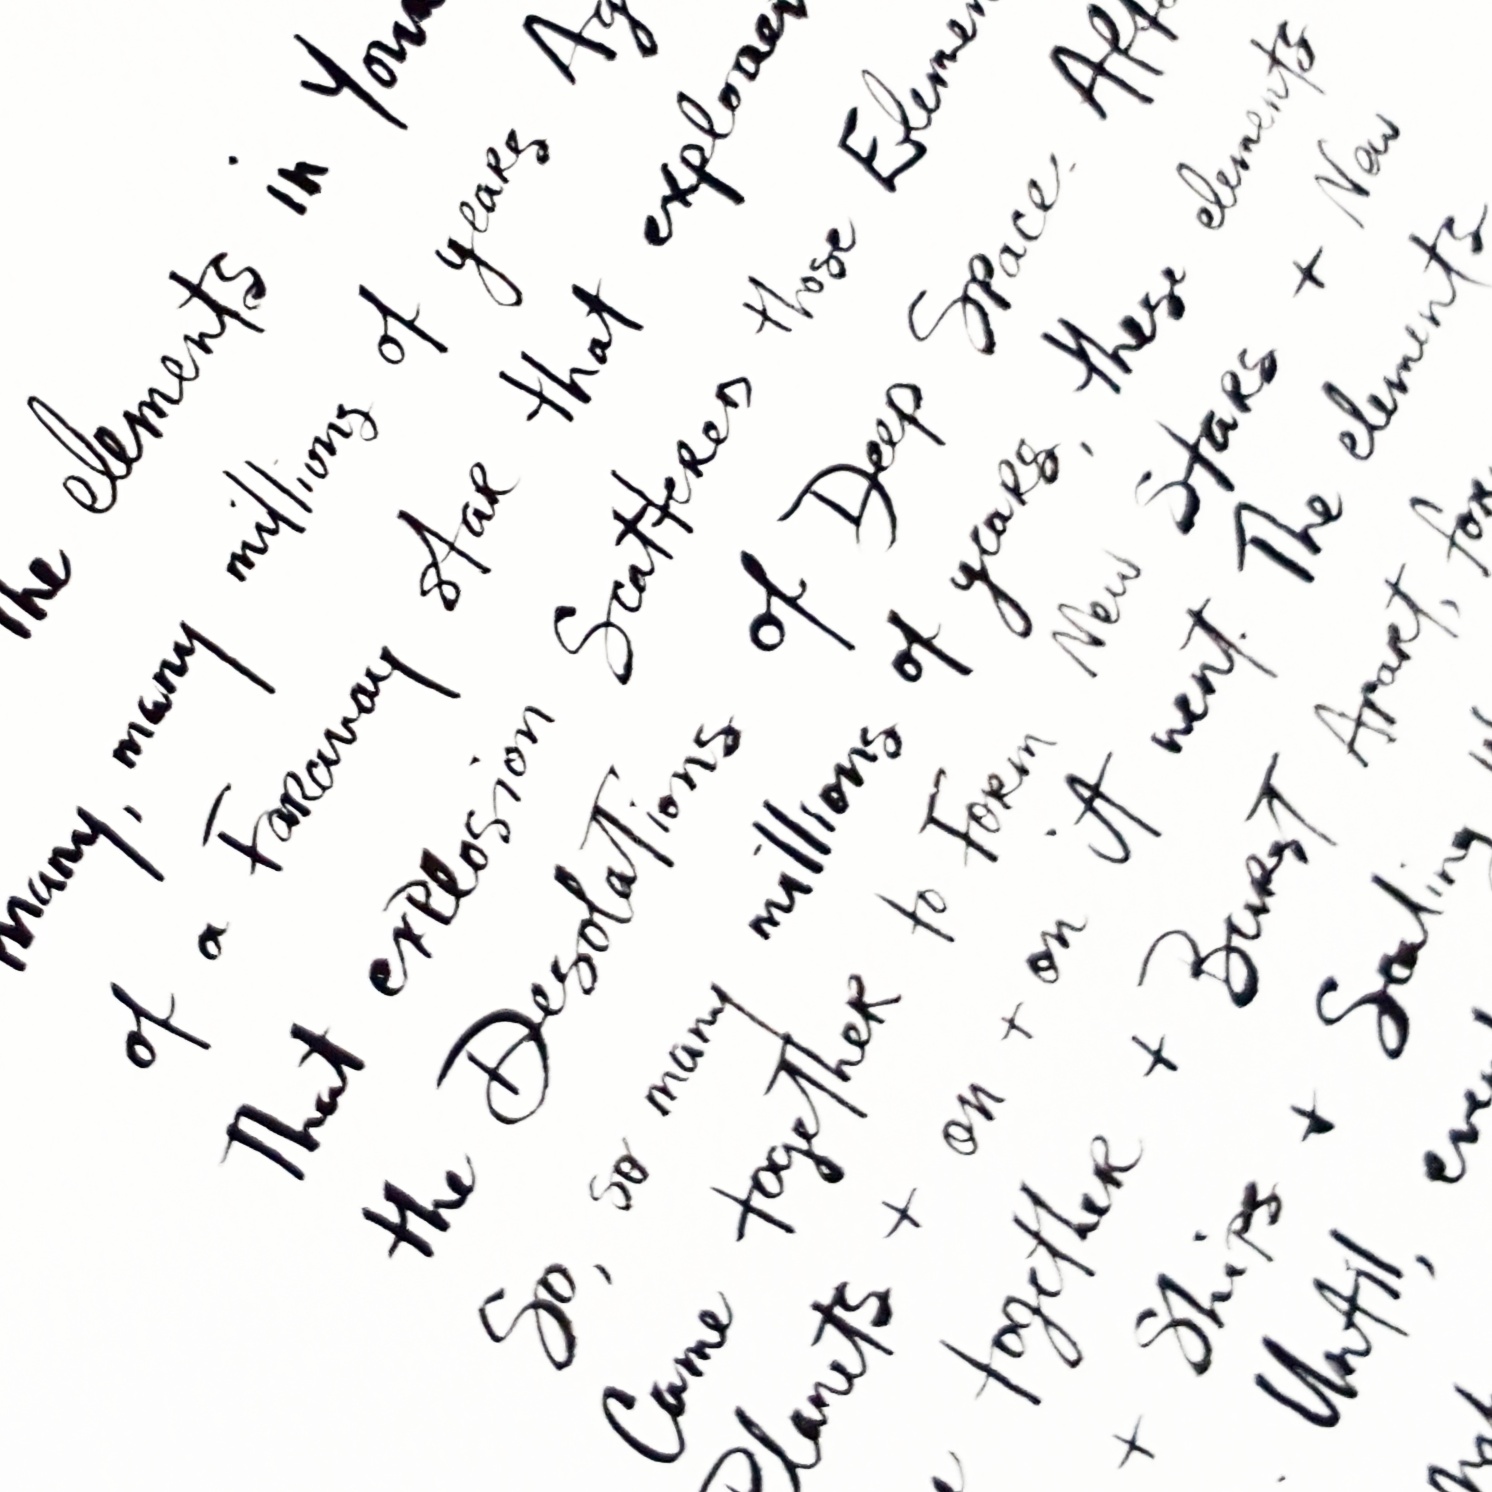 The elements in You
many, many millions of years Ag
of a Faraway star that exploded
That explosion Scattered those Elemen
the Desolations of Deep Space. Aft
So, so many millions of years, these elements
Came together to Form New Stars + New
Planets + on + on it went. The elements
together + Burst Apart, for
+ Ships + Sealing
Until, eve